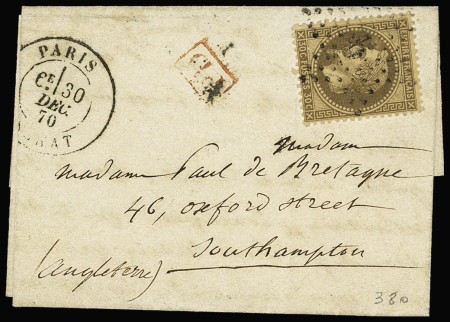 PARIS
30
DEC.
70
EMPIRE FRANÇAIS
madam
madam Paul de Bretagne
46, oxford street
Southampton
(angleterre)
380